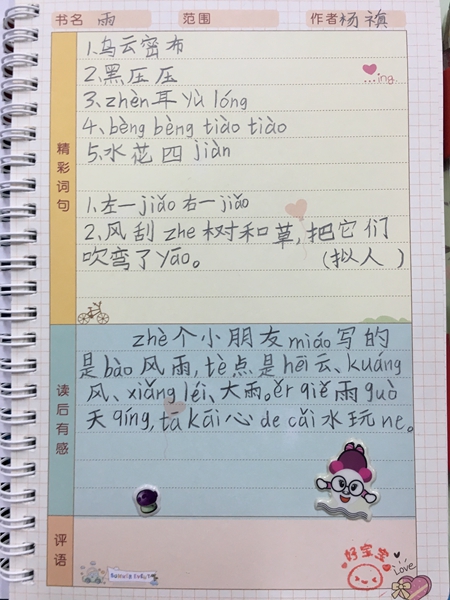 书名 雨 范围 作者 杨祺
1.乌云密布
2.黑压压
...ing
3.zhèn耳yù lóng
4.bèng bèng tiào tiào
5.水花四jiàn
精彩词句
1.左一jiǎo右一jiǎo
2.风刮zhe树和草,把它们
吹弯了yāo。 (拟人 )
zhè个小朋友miáo写的
是bào风雨,tè点是hēi云、kuáng
风、xiǎng léi、大雨。ěr qiě雨guò
天qíng,tā kāi心de cǎi水玩ne。
读后有感
评语
好宝宝
Love